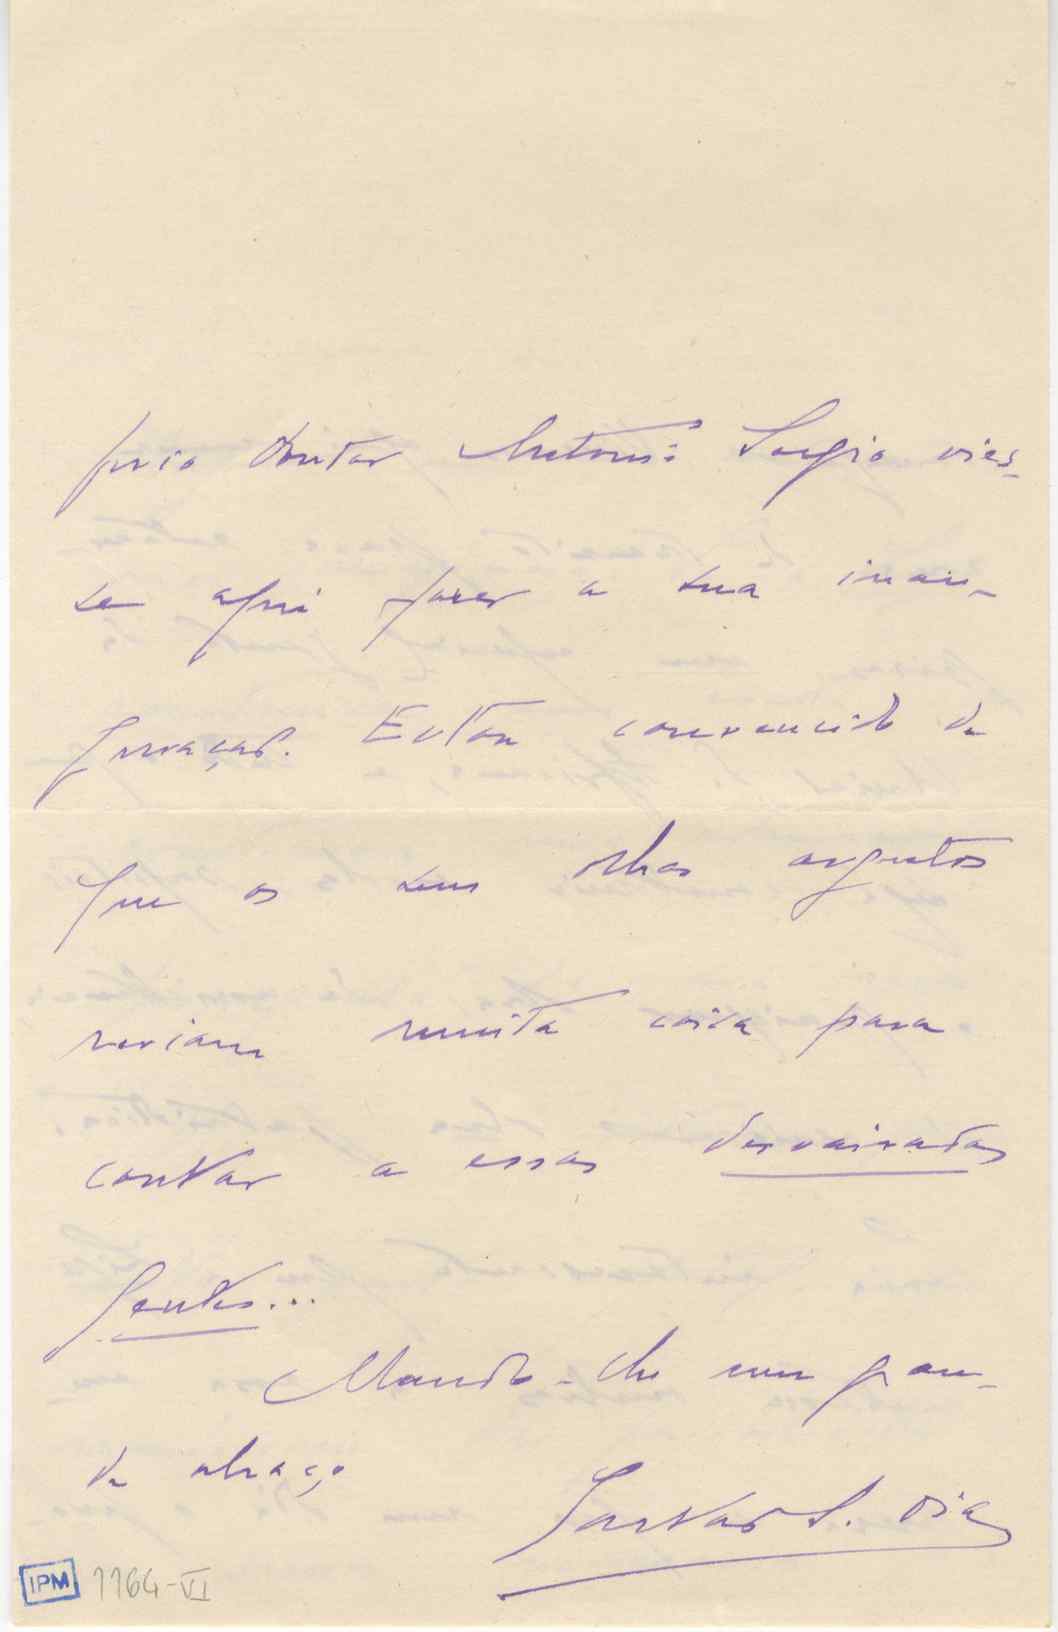 prio doutor Antonio Sergio vies-
se aqui fazer a sua inau-
guração. Estou convencido de
que os seus olhos argutos
veriam muita coisa para
contar a essas desvairadas
gentes...
Mando-lhe um gran-
de abraço
S. Dias
IPM 1164-VI